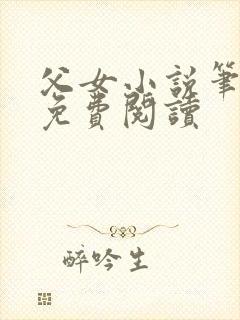 父女小説筆
免費閱讀
醉吟生